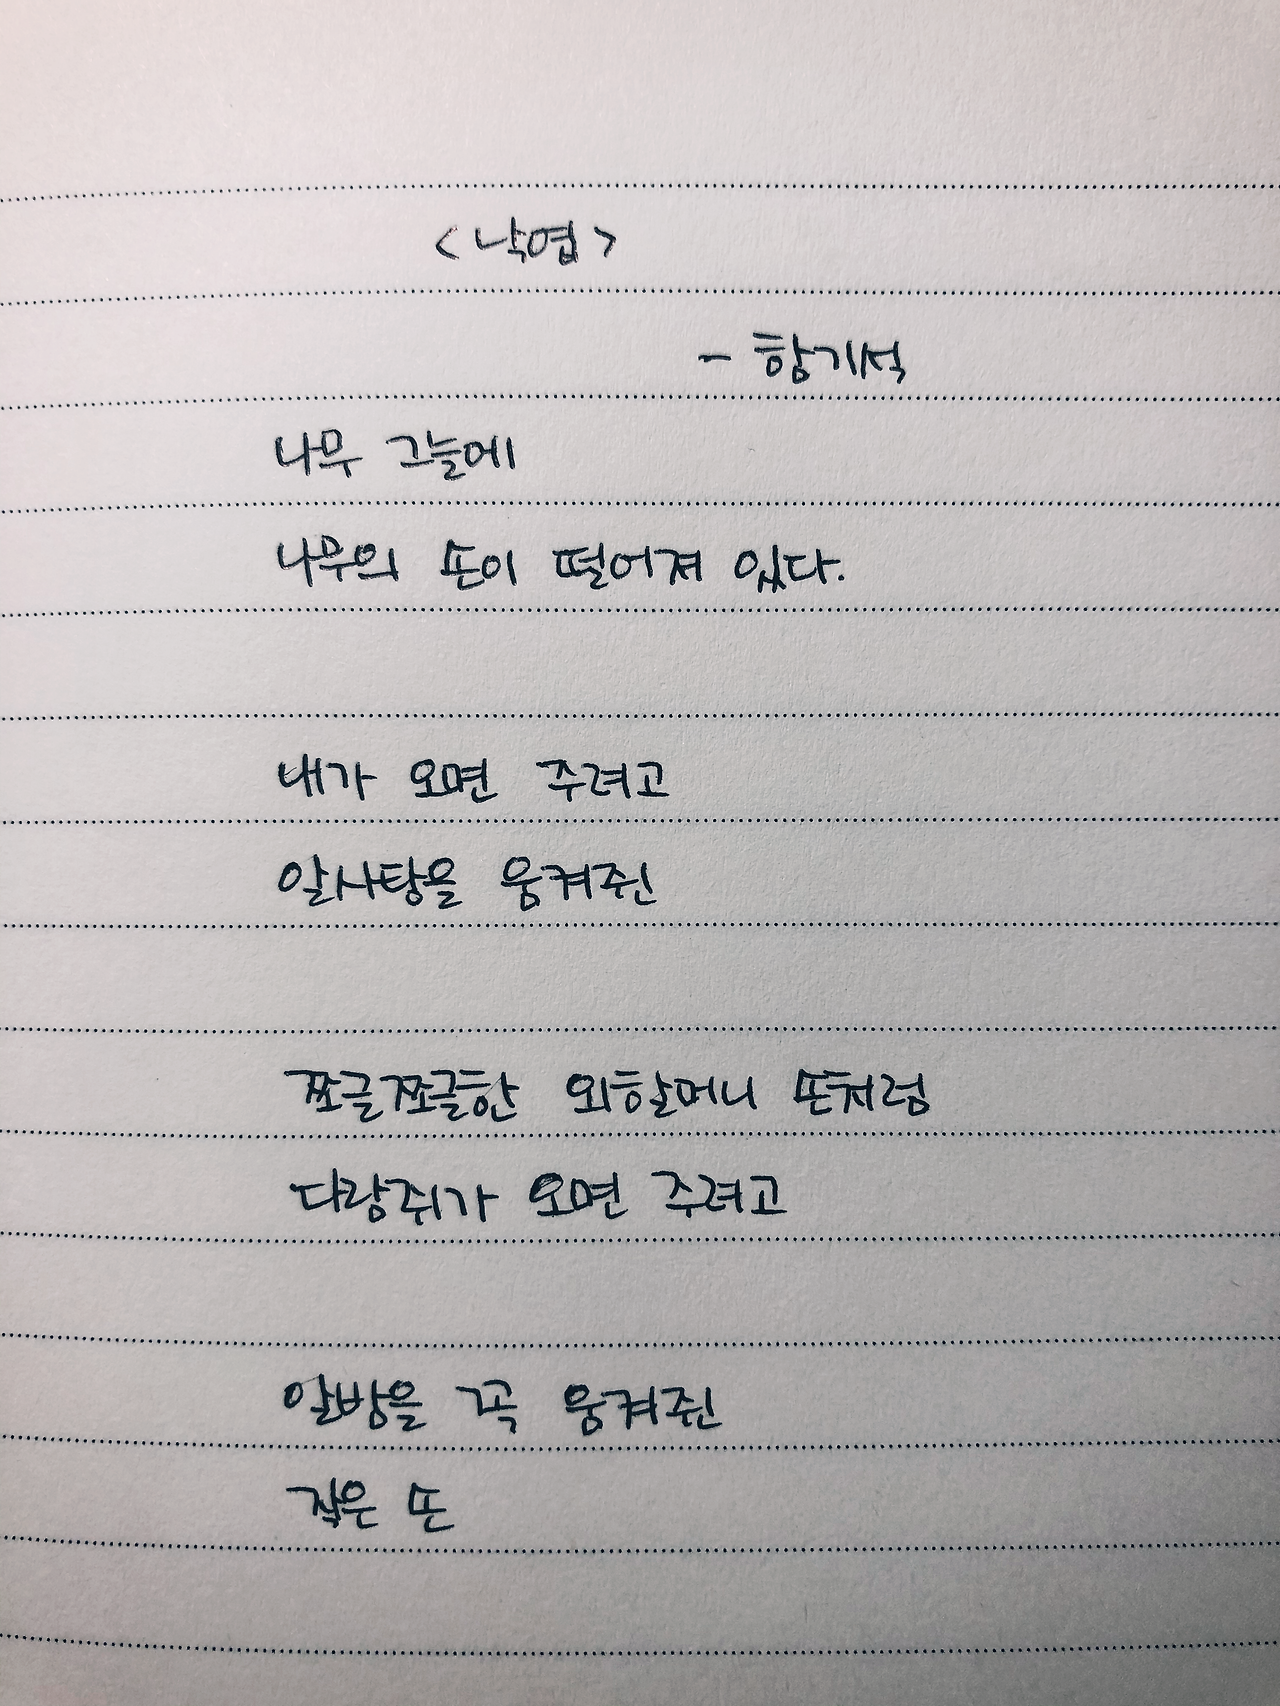 <낙엽>
- 함기석
나무 그늘에
나무의 손이 떨어져 있다.
내가 오면 주려고
알사탕을 움켜쥔
쪼글쪼글한 외할머니 손처럼
다람쥐가 오면 주려고
알밤을 꼭 움켜쥔
작은 손